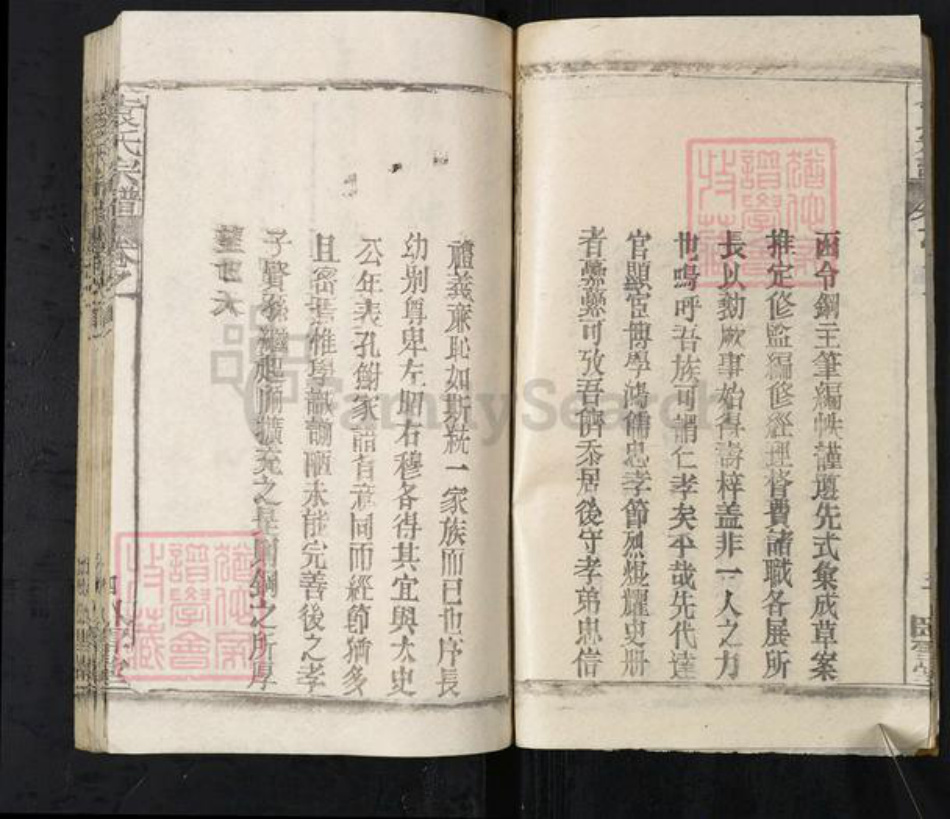 而令鋼主筆編帙謹遵先式彙成草案
推定修監編修經理督費諸職各展所
長以勷厥事始得壽梓蓋非一人之力
也嗚呼吾族可謂仁孝矣乎哉先代達
官顯宦博學鴻儒忠孝節烈焜耀史册
者纍纍可攷吾儕忝居後守孝弟忠信
禮義廉恥如斯統一家族而已也序長
幼别尊卑左昭右穆各得其宜與太史
公年表孔鮒家語有意同而經節猶多
且密焉惟學識謭陋未能完善後之孝
子賢孫繼起而擴充之是則鋼之所厚
望也夫
袁氏宗譜
卷之一
四
臥雪堂
臥雪堂
譜學會
收藏
譜學會
收藏
FamilySearch